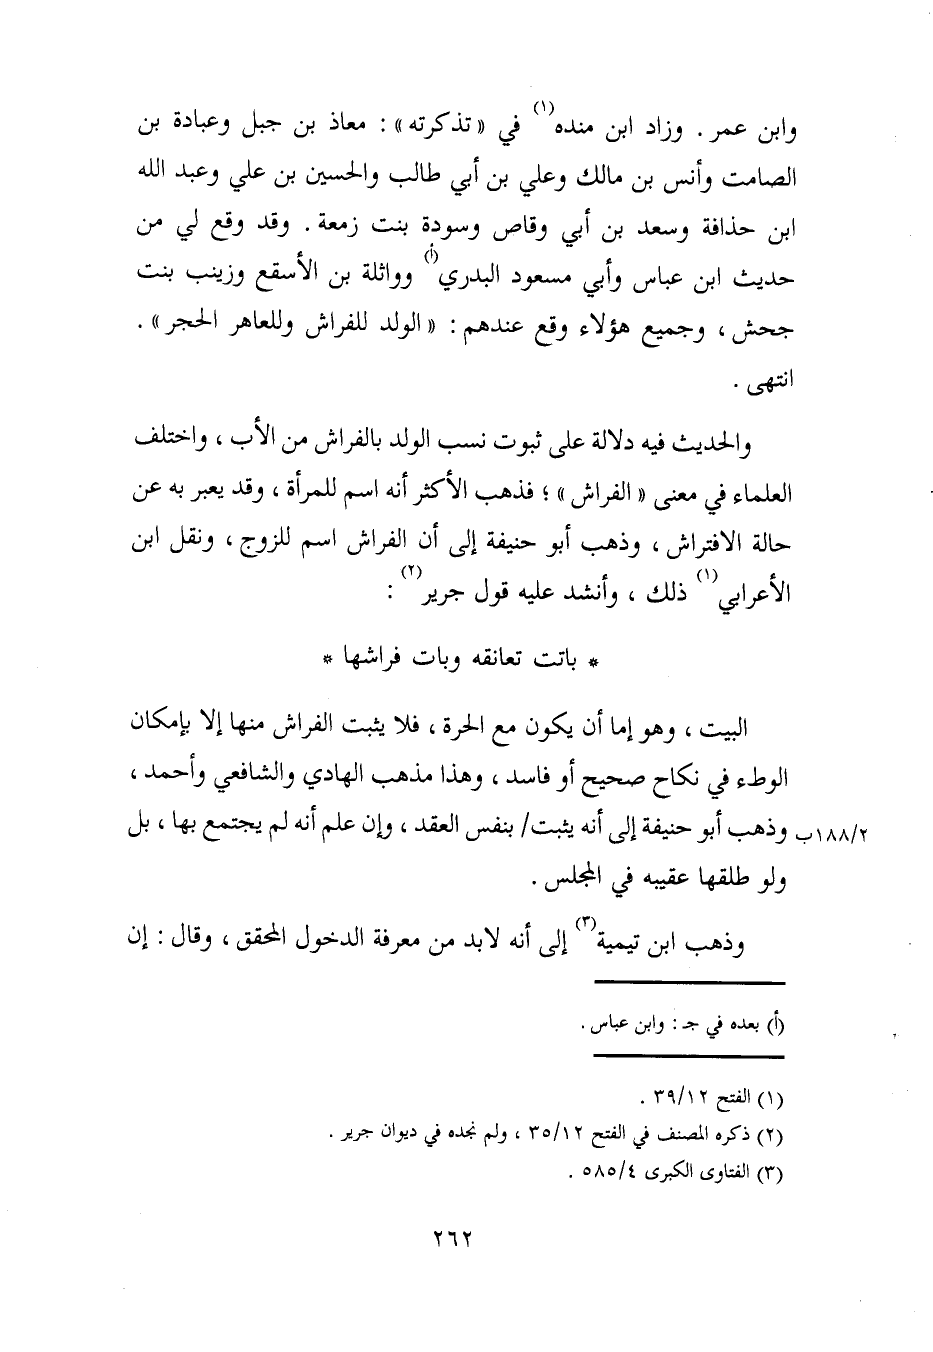 وابن عمر . وزاد ابن منده(١) في « تذكرته » : معاذ بن جبل وعبادة بن
الصامت وأنس بن مالك وعلي بن أبي طالب والحسين بن علي وعبد الله
ابن حذافة وسعد بن أبي وقاص وسودة بنت زمعة . وقد وقع لي من
حديث ابن عباس وأبي مسعود البدري(أ) وواثلة بن الأسقع وزينب بنت
جحش ، وجميع هؤلاء وقع عندهم : « الولد للفراش وللعاهر الحجر » .
انتهى .
والحديث فيه دلالة على ثبوت نسب الولد بالفراش من الأب ، واختلف
العلماء في معنى « الفراش » ؛ فذهب الأكثر أنه اسم للمرأة ، وقد يعبر به عن
حالة الافتراش ، وذهب أبو حنيفة إلى أن الفراش اسم للزوج ، ونقل ابن
الأعرابي(١) ذلك ، وأنشد عليه قول جرير(٢) :
* باتت تعانقه وبات فراشها *
البيت ، وهو إما أن يكون مع الحرة ، فلا يثبت الفراش منها إلا بإمكان
الوطء في نكاح صحيح أو فاسد ، وهذا مذهب الهادي والشافعي وأحمد ،
٢/١٨٨ب وذهب أبو حنيفة إلى أنه يثبت/ بنفس العقد ، وإن علم أنه لم يجتمع بها ، بل
ولو طلقها عقيبه في المجلس .
وذهب ابن تيمية(٣) إلى أنه لابد من معرفة الدخول المحقق ، وقال : إن
(أ) بعده في جـ : وابن عباس .
(١) الفتح ١٢/٣٩ .
(٢) ذكره المصنف في الفتح ١٢/٣٥ ، ولم نجده في ديوان جرير .
(٣) الفتاوى الكبرى ٤/٥٨٥ .
٢٦٢